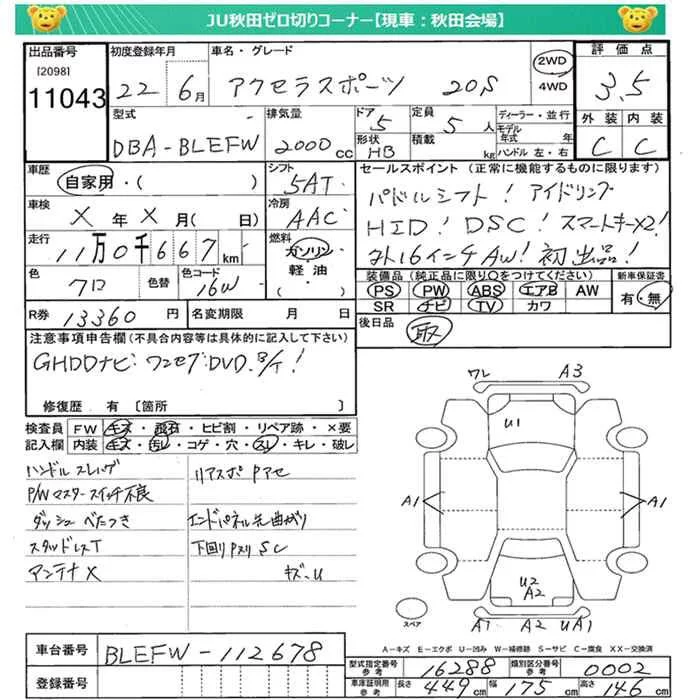 JU秋田ゼロ切りコーナー【現車：秋田会場】
出品番号
[2098]
11043
初度登録年月
22年 6月
車名・グレード
アクセラスポーツ 20S
2WD
4WD
評価点
3.5
外装 内装
C C
型式
DBA-BLEFW
排気量
2000cc
ドア
5
形状
HB
定員
5人
積載
kg
ディーラー・並行
モデル年式 年
ハンドル 左・右
車歴
自家用・( )
シフト
5AT
車検
X年X月( 日)
冷房
AAC
走行
11万0千667km
燃料
ガソリン・軽油
( )
色
クロ
色替
色コード
16W
R券
13360円
名変期限 月 日
セールスポイント(正常に機能するものに限ります)
パドルシフト! アイドリング
HID! DSC! スマートキーX2!
16インチAW! 初出品!
装備品(純正品に限り○をつけてください)
PS PW ABS エアB AW
SR ナビ TV カワ
新車保証書
有・無
後日品
取
注意事項申告欄(不具合内容等は具体的に記入して下さい)
GHDDナビ・ワンセグ・DVD.
修復歴 有〔箇所 〕
検査員記入欄
FW キズ・飛石・ヒビ割・リペア跡・×要
内装 キズ・汚レ・コゲ・穴・スレ・キレ・破レ
ハンドルスレ
P/Wマスタースイッチ不良
ダッシュ べたつき
スタッドレスT
アンテナX
リアスポPアセ
エンドパネル先曲がり
下回りPヌリSC
キズ・U
ワレ A3
U1
A1 A1
U2
A2
A1 A2 UA1
スペア
A－キズ E－エクボ U－凹み W－補修跡 S－サビ C－腐食 XX－交換済
車台番号
BLEFW-112678
登録番号
型式指定番号 参考
16288
類別区分番号 参考
0002
車庫証明用 参考
長さ 449cm
幅 175cm
高さ 146cm